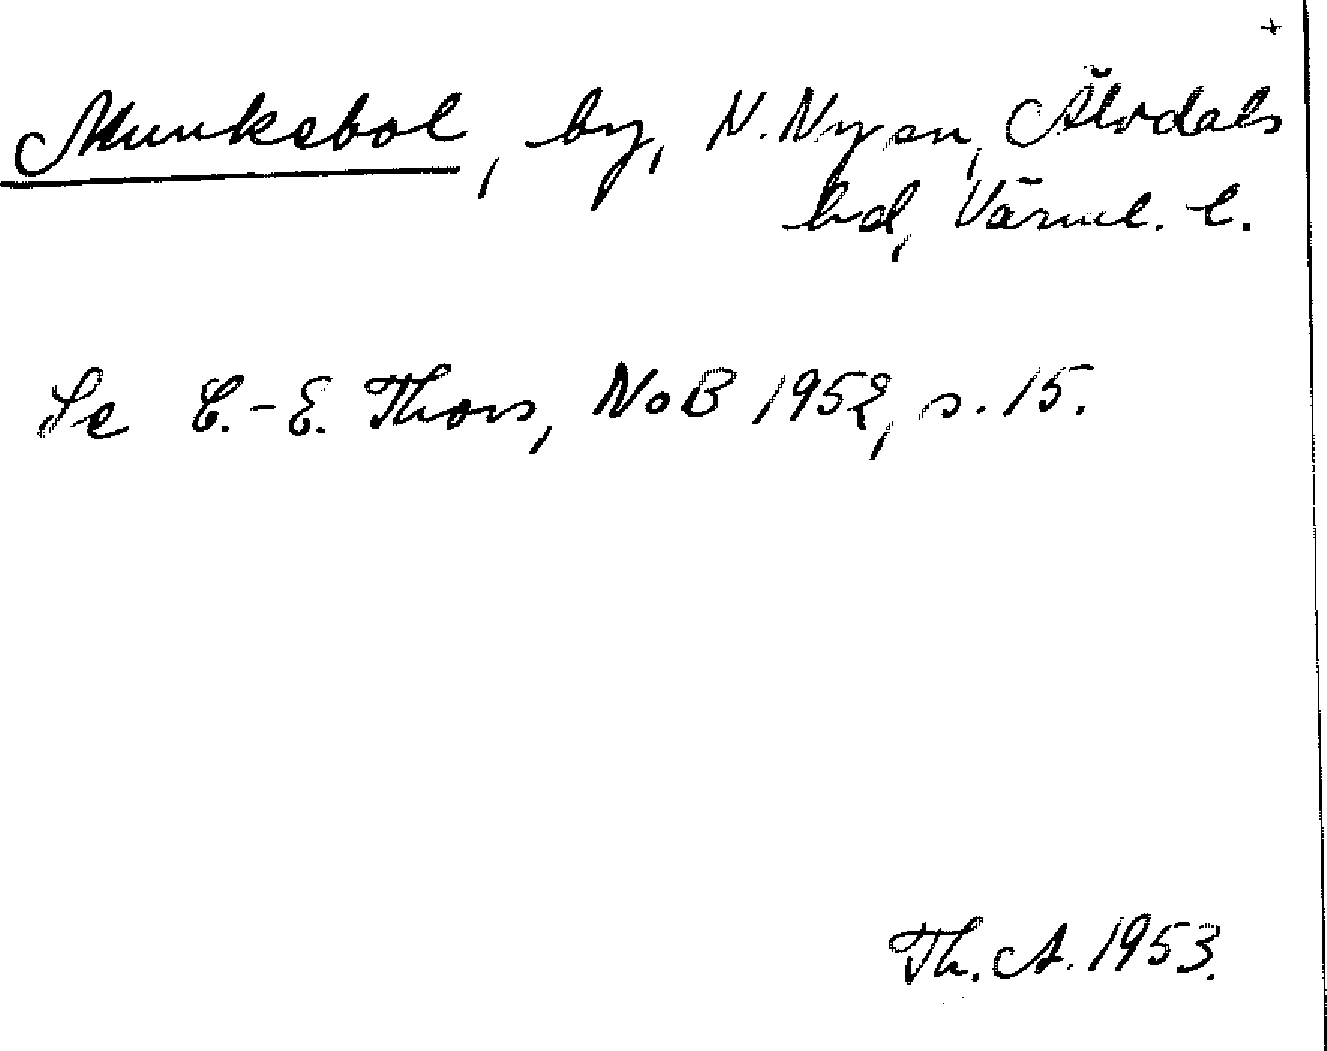 +
Munkebol, by, N. Ny sn, Älvdals
hd, Värml. l.
Se C.-E. Thors, NoB 1952, s. 15.
Th. A. 1953.